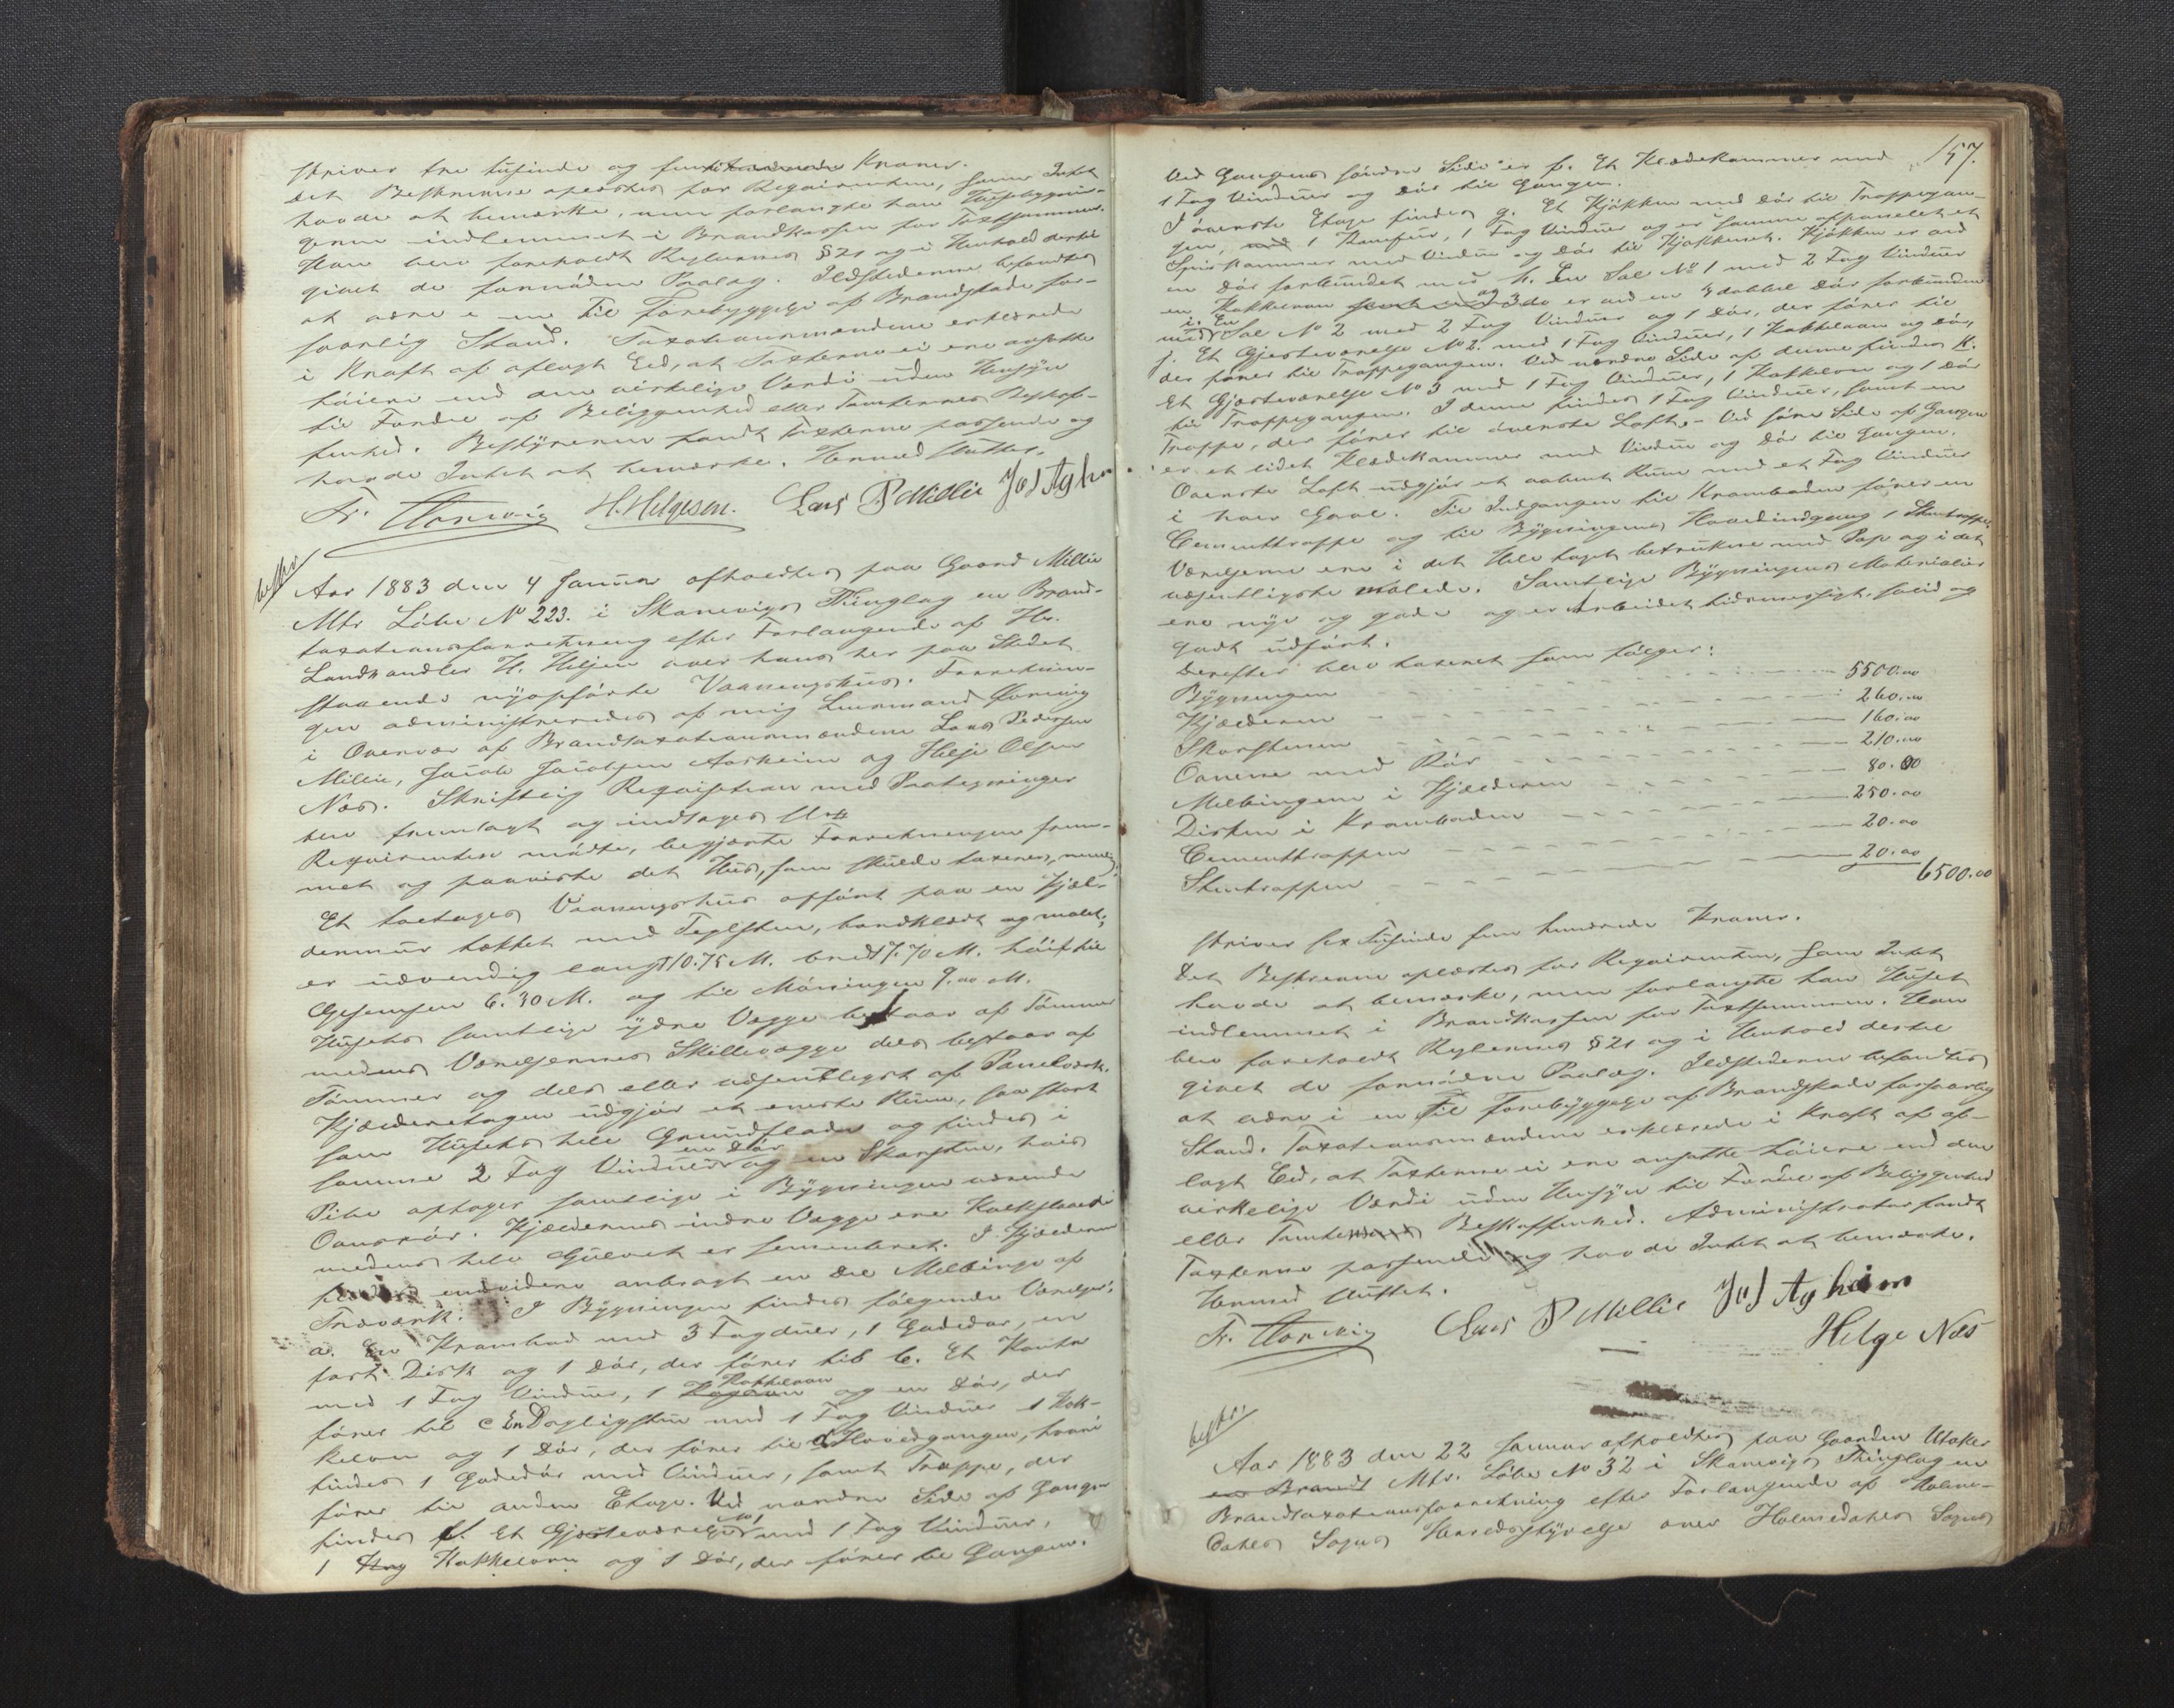 skriver tre tusinde og fem hundrede Kroner.
Det Beskrevne oplæstes for Reqvirenten, som Intet
havde at bemærke, men forlangte han Husebygnin-
gerne indlemmet i Brandkassen for Taxtsummen.
Han blev foreholdt Reglernes § 21 og i Henhold dertil
givet de fornødne Paalæg. Ildstederne befandtes
at være i en til Forebyggelse af Brandskade for-
svarlig Stand. Taxationsmændene erklærede
i Kraft af aflagt Eed, at Taxterne ei ere ansatte
høiere end den virkelige Værdi uden Hensyn
til Fordel af Beliggenhed eller Tomternes Beskaf-
fenhed. Bestyreren fandt Taxterne passende og
havde Intet at bemærke. Hermed sluttet.
Fr. H. Helgesen. Lars P Millie
Aar 1883 den 4 Januar afholdtes paa Gaard Millie
Mtr Löbe No 223. i Skonevigs Thinglag en Brand-
taxationsforretning efter Forlangende af Hr.
Landhandler H. over hans her paa Stedet
staaende nyopførte Vaaningshus. Forretnin-
gen administreredes af mig Lensmand
i Overvær af Brandtaxationsmændene Lars Pedersen
Millie, Jacob Jacobsen og Helje Olsen
Næs. Skriftlig Reqvisition med Paategninger
blev fremlagt og indtages
Reqvirenten mødte, begjærte Forretningen frem-
met og paaviste det Hus, som skulde taxeres, nemlig
Et toetages Vaaningshus opført paa en Kjæl-
dermur tækket med Teglsten, bordklædt og malet,
er udvendig langt 10.75 M. bredt 7.70 M. høit til
Gesemsen 6.30 M. og til Mönningen 9.00 M.
Husets samtlige ydre Vægge bestaar af Tømmer
medens Værelsernes Skillevægge dels bestaar af
Tømmer og dels eller væsentligst af Panelværk.
Kjælderetagen udgjør et eneste Rum, saa stort
som Husets hele Grundflade og findes i
samme 2 Fag Vinduer en Dör og en Skorsten, hvis
Pibe optager samtlige i Bygningen værende
Ovnsrör. Kjælderens indre Vægge ere
medens hele Gulvet er sementeret. I Kjælderen
endvidere anbragt en Del Melbinge af
Træværk. I Bygningen findes følgende Værelser:
a. En Krambod med 3 Fag , 1 Gadedør, en
fast Disk og 1 Dör, der fører til b. Et Kontor
med 1 Fag Vinduer, 1 Kakkelovn og en Dör, der
fører til c En Dagligstue med 1 Fag Vinduer 1 Kak-
kelovn og 1 Dör, der fører til d Hovedgangen, hvori
findes 1 Gadedör med Vinduer, samt Trappe, der
fører til anden Etage. Ved nordre Side af Gangen
findes Et Gjesteværelse No 1 med 1 Fag Vinduer,
1 Kakkelovn og 1 Dör, der fører til Gangen.
157.
Ved Gangens søndre Side er f. Et Klædekammer med
1 Fag Vinduer og Dör til Gangen.
I øverste Etage findes g. Et Kjökken med Dör til Trappegan-
gen, 1 Komfur, 1 Fag Vinduer og er samme afpanelet et
Spiskammer med Vindu og Dör til Kjøkkenet. Kjökken er ved
en Dör forbundet med h. En Sal No 1 med 2 Fag Vinduer
en Kakkelovn og er ved en dobbel Dör forbunden
med i. En Sal No 2 med 2 Fag Vinduer og 1 Dör, der fører til
j. Et Gjesteværelse No 2. med 1 Fag Vinduer, 1 Kakkelovn og Dör,
der fører til Trappegangen. Ved nordre Side af denne findes K.
Et Gjesteværelse No 3 med 1 Fag Vinduer, 1 Kakkelovn og 1 Dör
til Trappegangen. I denne findes 1 Fag Vinduer, samt en
Trappe, der fører til øverste Loft. Ved søre Side af Gangen
er et lidet Klædekammer med Vindu og Dör til Gangen.
Øverste Loft udgjør et aabent Rum med et Fag Vinduer
i hver Gavl. Til Indgangen til Kramboden fører en
Cementtrappe og til Bygningens Hovedindgang 1 Stentrappe.
Værelserne ere i det Hele taget betrukne med Pap og i det
væsentligste malede. Samtlige Bygningens Materialier
ere nye og gode og er Arbeidet tidsmæssigt, solid og
godt udført.
Derefter blev taxeret som følger:
Bygningen 5500.00
Kjælderen 260.00
Skorstenen 160.00
Ovnene med Rör 210.00
Melbingene i Kjælderen 80.00
Disken i Kramboden 250.00
Cementtrappen 20.00
Stentrappen 20.00
6500.00
skriver sex Tusinde fem hundrede Kroner.
Det Beskrevne oplæstes for Reqvirenten, som Intet
havde at bemærke, men forlangte han Huset
indlemmet i Brandkassen for Taxtsummen. Han
blev foreholdt Reglernes § 21 og i Henhold dertil
givet de fornødne Paalæg. Ildstederne befandtes
at være i en til Forebyggelse af Brandskade forsvarlig
Stand. Taxationsmændene erklærede i Kraft af af-
lagt Eed, at Taxterne ei ere ansatte høiere end den
virkelige Værdi uden Hensyn til Fordel af Beliggenhed
eller Tomtens Beskaffenhed. Administrator fandt
Taxterne passende og havde Intet at bemærke.
Hermed sluttet.
Fr. Lars P Millie
Helge Næs
Aar 1883 den 22 Januar afholdtes paa Gaarden Utaker
en Brandt Mtr. Löbe No 32 i Skonevigs Thinglag en
Brandtaxationsforretning efter Forlangende af Holme-
dahls Sogns Herredsstyrelse over Holmedahls Sogns